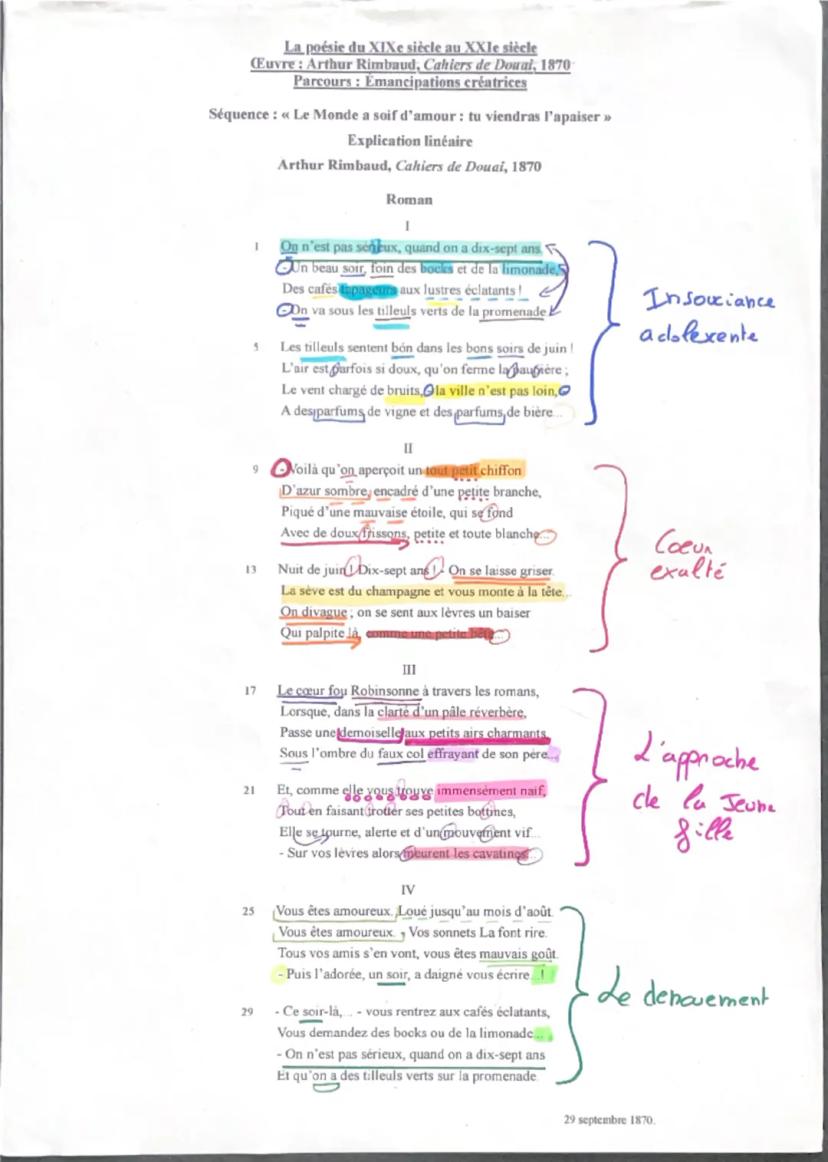 La poésie du XIXe siècle au XXIe siècle
Œuvre : Arthur Rimbaud, Cahiers de Douai, 1870
Parcours : Émancipations créatrices
Séquence : « Le Monde a soif d'amour : tu viendras l'apaiser »
Explication linéaire
Arthur Rimbaud, Cahiers de Douai, 1870
Roman
I
1 On n'est pas sérieux, quand on a dix-sept ans.
- Un beau soir, foin des bocks et de la limonade,
Des cafés tapageurs aux lustres éclatants !
- On va sous les tilleuls verts de la promenade.
5 Les tilleuls sentent bon dans les bons soirs de juin !
L'air est parfois si doux, qu'on ferme la paupière ;
Le vent chargé de bruits, - la ville n'est pas loin, -
A des parfums de vigne et des parfums de bière...
Insouciance
adolexente
II
9 - Voilà qu'on aperçoit un tout petit chiffon
D'azur sombre, encadré d'une petite branche,
Piqué d'une mauvaise étoile, qui se fond
Avec de doux frissons, petite et toute blanche...
13 Nuit de juin ! Dix-sept ans ! - On se laisse griser.
La sève est du champagne et vous monte à la tête...
On divague ; on se sent aux lèvres un baiser
Qui palpite là, comme une petite bête...
Coeur
exalté
III
17 Le cœur fou Robinsonne à travers les romans,
Lorsque, dans la clarté d'un pâle réverbère,
Passe une demoiselle aux petits airs charmants,
Sous l'ombre du faux col effrayant de son père...
21 Et, comme elle vous trouve immensément naïf,
Tout en faisant trotter ses petites bottines,
Elle se tourne, alerte et d'un mouvement vif...
- Sur vos lèvres alors meurent les cavatines...
L'approche
de la Jeune
fille
IV
25 Vous êtes amoureux. Loué jusqu'au mois d'août.
Vous êtes amoureux. - Vos sonnets La font rire.
Tous vos amis s'en vont, vous êtes mauvais goût.
- Puis l'adorée, un soir, a daigné vous écrire...!
29 - Ce soir-là,... - vous rentrez aux cafés éclatants,
Vous demandez des bocks ou de la limonade...
- On n'est pas sérieux, quand on a dix-sept ans
Et qu'on a des tilleuls verts sur la promenade.
Le denouement
29 septembre 1870.